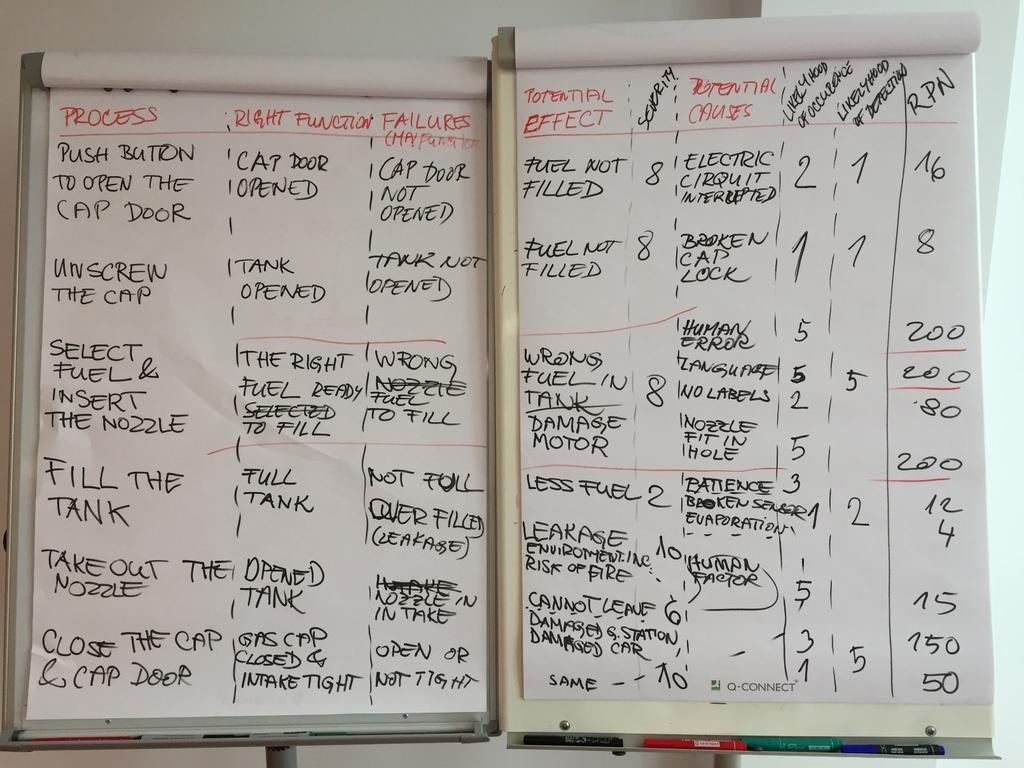 PROCESS
RIGHT FUNCTION
FAILURES
(MALFUNCTION
PUSH BUTTON
TO OPEN THE
CAP DOOR
CAP DOOR
OPENED
CAP DOOR
NOT
OPENED
UNSCREW
THE CAP
TANK
OPENED
TANK NOT
OPENED
SELECT
FUEL &
INSERT
THE NOZZLE
THE RIGHT
FUEL READY
SELECTED
TO FILL
WRONG
NOZZLE
FUEL
TO FILL
FILL THE
TANK
FULL
TANK
NOT FULL
OVER FILLED
(LEAKAGE)
TAKE OUT THE
NOZZLE
OPENED
TANK
INTAKE
NOZZLE IN
INTAKE
CLOSE THE CAP
& CAP DOOR
GAS CAP
CLOSED &
INTAKE TIGHT
OPEN OR
NOT TIGHT
POTENTIAL
EFFECT
SEVERITY
POTENTIAL
CAUSES
LIKELYHOOD
OF OCCURENCE
LIKELYHOOD
OF DETECTION
RPN
FUEL NOT
FILLED
8
ELECTRIC
CIRQUIT
INTERUPTED
2
1
16
FUEL NOT
FILLED
8
BROKEN
CAP
LOCK
1
1
8
WRONG
FUEL IN
TANK
DAMAGE
MOTOR
8
HUMAN
ERROR
5
200
LANGUAGE
5
5
200
NO LABELS
2
80
NOZZLE
FIT IN
HOLE
5
200
LESS FUEL
2
PATIENCE
3
BROKEN SENSOR
1
2
12
EVAPORATION
4
LEAKAGE
ENVIROMENT.INC.
RISK OF FIRE
10
HUMAN
FACTOR
5
15
CANNOT LEAVE
DAMAGED G.STATION,
DAMAGED CAR
6
3
5
150
SAME
10
1
50
Q-CONNECT